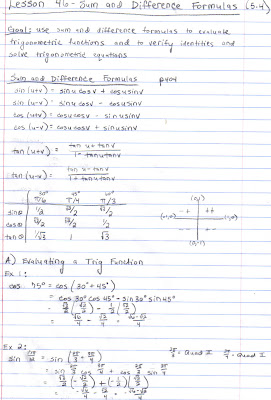 Lesson 46 - Sum and Difference Formulas (5.4)
Goal: use sum and difference formulas to evaluate
trigonometric functions and to verify identities and
solve trigonometric equations
Sum and Difference Formulas p404
sin (u+v) = sinu cosv + cosu sinv
sin (u-v) = sinu cosv - cosu sinv
cos (u+v) = cosu cosv - sinu sinv
cos (u-v) = cosu cosv + sinu sinv
tan (u+v) = tan u + tan v / 1 - tanu tanv
tan (u-v) = tan u - tan v / 1 + tan u tan v
30° 45° 60°
π/6 π/4 π/3 (0,1)
sinθ 1/2 √2/2 √3/2 -+ ++
cosθ √3/2 √2/2 1/2 (-1,0) (1,0)
tanθ 1/√3 1 √3 -- +-
(0,-1)
A) Evaluating a Trig Function
Ex 1:
cos 75° = cos (30° + 45°)
= cos 30° cos 45° - sin 30° sin 45°
= √3/2 (√2/2) - 1/2 (√2/2)
= √6/4 - √2/4 = √6-√2/4
Ex 2: